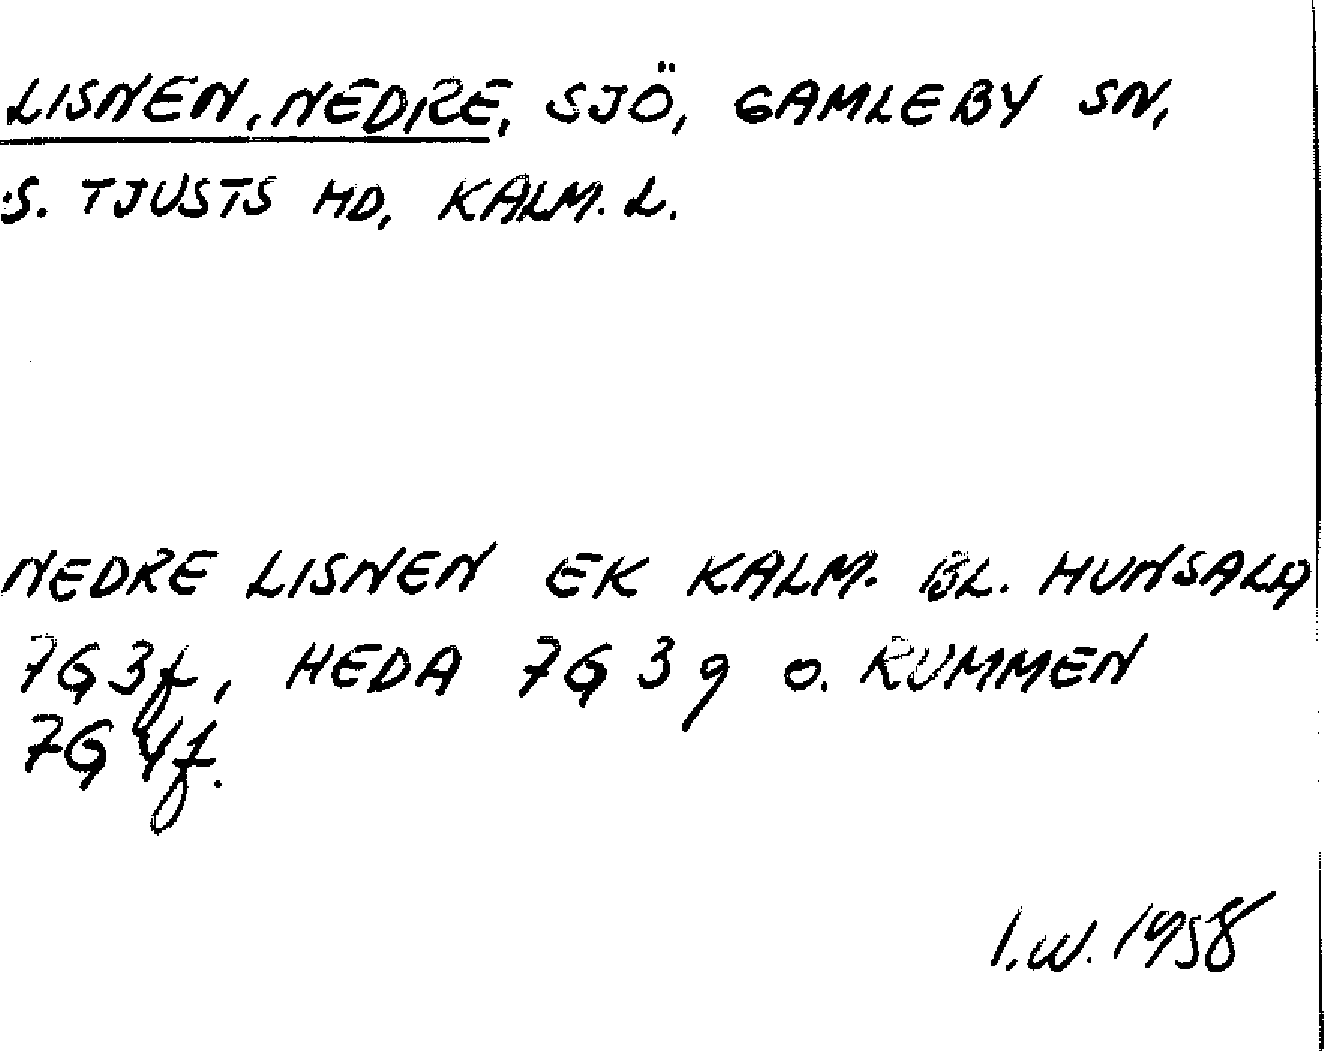 LISNEN, NEDRE, SJÖ, GAMLEBY SN,
S. TJUSTS HD, KALM. L.
NEDRE LISNEN EK KALM. BL. HUNSALA
7G 3f, HEDA 7G 3g o. RUMMEN
7G 4f.
I.W. 1958